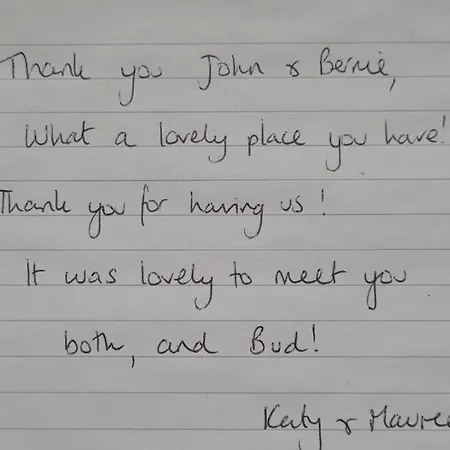 Thank you John & Bernie,
What a lovely place you have!
Thank you for having us!
It was lovely to meet you
both, and Bud!
Katy &